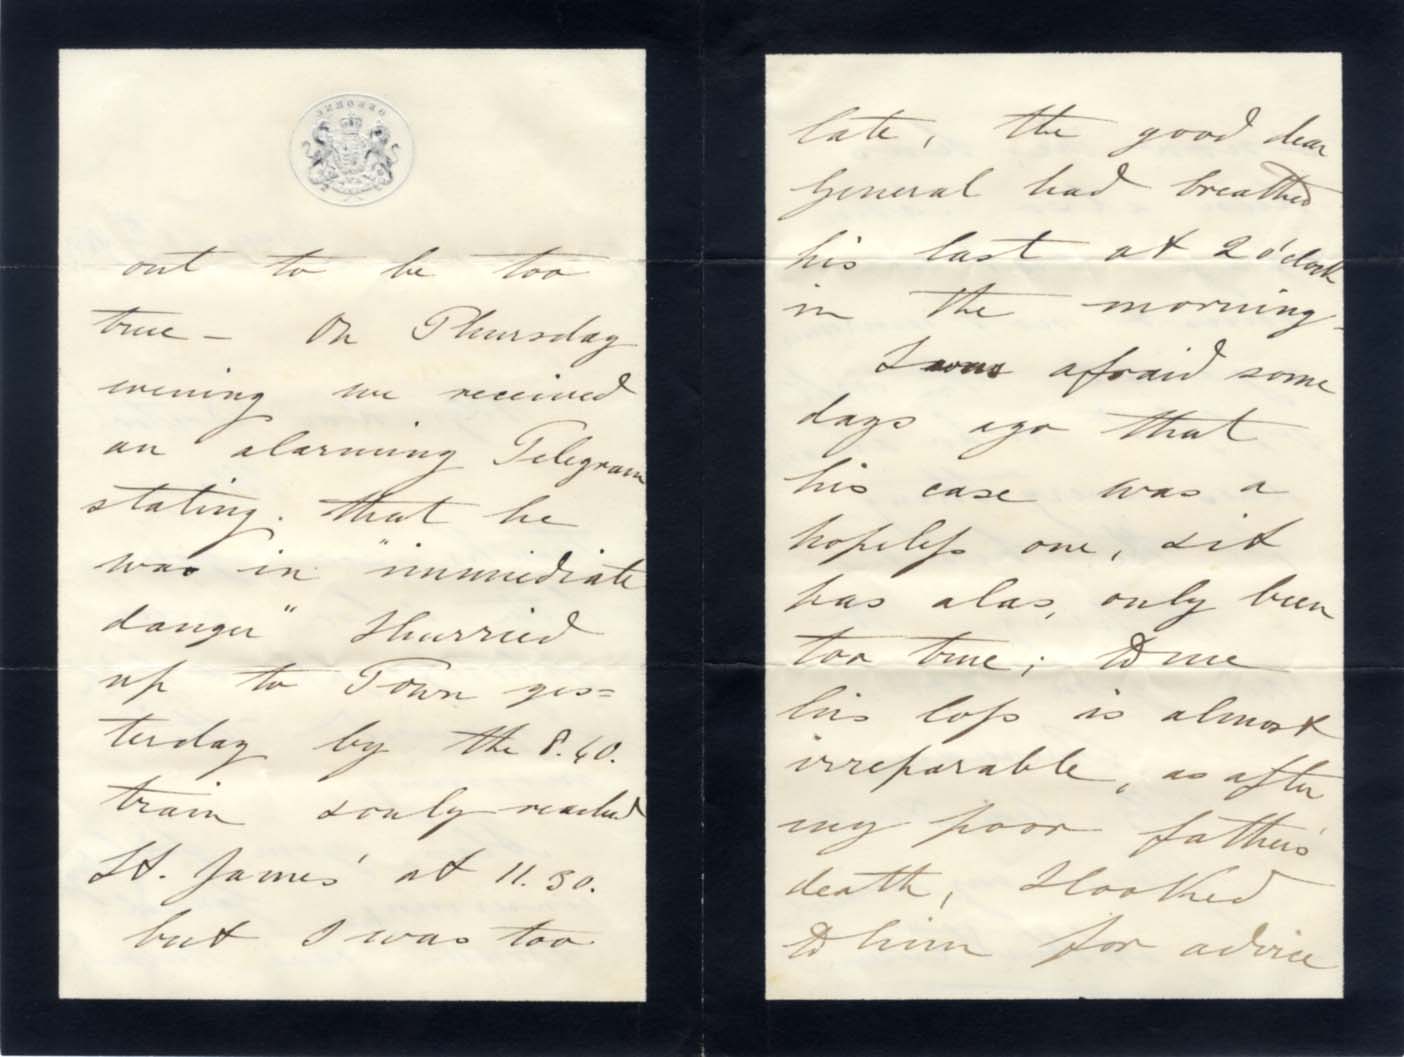 OSBORNE
out to be too
true – On Thursday
evening we received
an alarming Telegram
stating. that he
was in "immediate
danger" I hurried
up to Town yes=
terday by the 8.40.
train & only reached
St. James' at 11.30.
but I was too
late, the good dear
General had breathed
his last at 2 o'clock
in the morning –
I was afraid some
days ago that
his case was a
hopeless one, & it
has alas, only been
too true; to me
his loss is almost
irreparable, as after
my poor father's
death, I looked
to him for advice